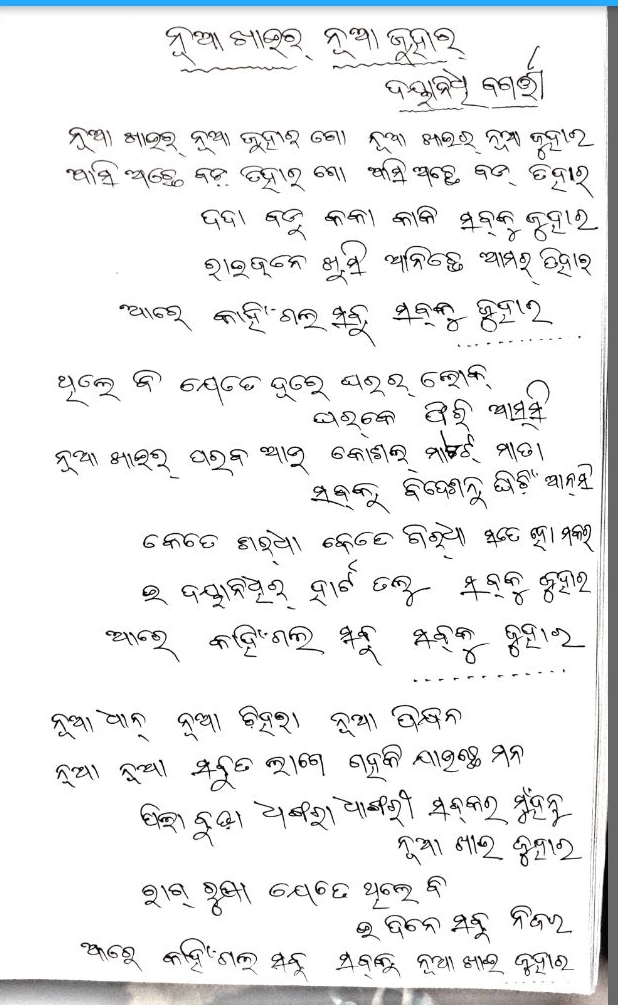 ନୂଆ ଖାଇର୍ ନୂଆ ଜୁହାର୍
ଦୟାନିଧି ବଗର୍ତ୍ତୀ
ନୂଆ ଖାଇର୍ ନୂଆ ଜୁହାର୍ ଗୋ ନୂଆ ଖାଇର୍ ନୂଆ ଜୁହାର
ଆସି ଅଛେ ବଡ଼ ତିହାର୍ ଗୋ ଆସି ଅଛେ ବଡ୍ ତିହାର୍
ଦଦା ବଡୁ କକା କାକି ସବ୍‌କୁ ଜୁହାର
ରାଇଜ୍‌ନେ ଖୁସି ଆନିଛେ ଆମର୍ ତିହାର
ଆରେ କାହିଁ ଗଲ ସବୁ ସବ୍‌କୁ ଜୁହାର
ଥିଲେ ବି ଯେତେ ଦୂରେ ଘରର୍ ଲୋକ୍
ଘର୍‌କେ ଫିରି ଆସ୍‌ସି
ନୂଆ ଖାଇର୍ ପରବ ଆଏ କୋଶଲ୍ ମାଟିର୍ ମାତା
ସବ୍‌କୁ ବିଦେଶନୁ ଘିଚିଁ ଆନ୍‌ସି
କେତେ ଶର୍‌ଧା କେତେ ଗିର୍‌ଧା ସତେ
ଇ ଦୟାନିଧିର୍ ହାର୍ଟ ତଲୁ ସବ୍‌କୁ ଜୁହାର
ଆରେ କାହିଁ ଗଲ ସବୁ ସବ୍‌କୁ ଜୁହାର
ନୂଆ ଧାନ୍ ନୂଆ ଚିହରା ନୂଆ ପିନ୍ଧନ
ନୂଆ ନୂଆ ସବୁତ ଲାଗେ ଗହକି ଯାଇଛେ ମନ
ପିଲା ବୁଢ଼ା ଧାଙ୍ଗରା ଧାଙ୍ଗରୀ ସବ୍‌କର ମୁହଁନୁ
ନୂଆ ଖାଇ ଜୁହାର
ରାଗ୍ ରୁଷା ଯେତେ ଥିଲେ ବି
ଇ ଦିନେ ସବୁ ନିଜର
ଆରେ କାହିଁ ଗଲ୍ ସବୁ ସବ୍‌କୁ ନୂଆ ଖାଇ ଜୁହାର